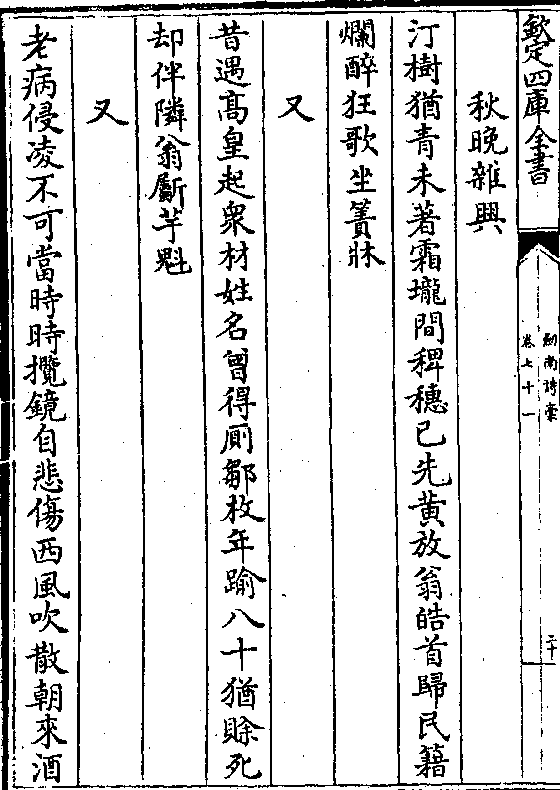 欽定四庫全書
劒南詩稾
卷七十一
二十
秋晚雜興
汀樹猶青未著霜壠間稗穗已先黄放翁皓首歸民籍
爛醉狂歌坐簀牀
又
昔遇髙皇起衆材姓名曾得厠鄒枚年踰八十猶賖死
却伴隣翁斸芋魁
又
老病侵凌不可當時時攬鏡自悲傷西風吹散朝來酒